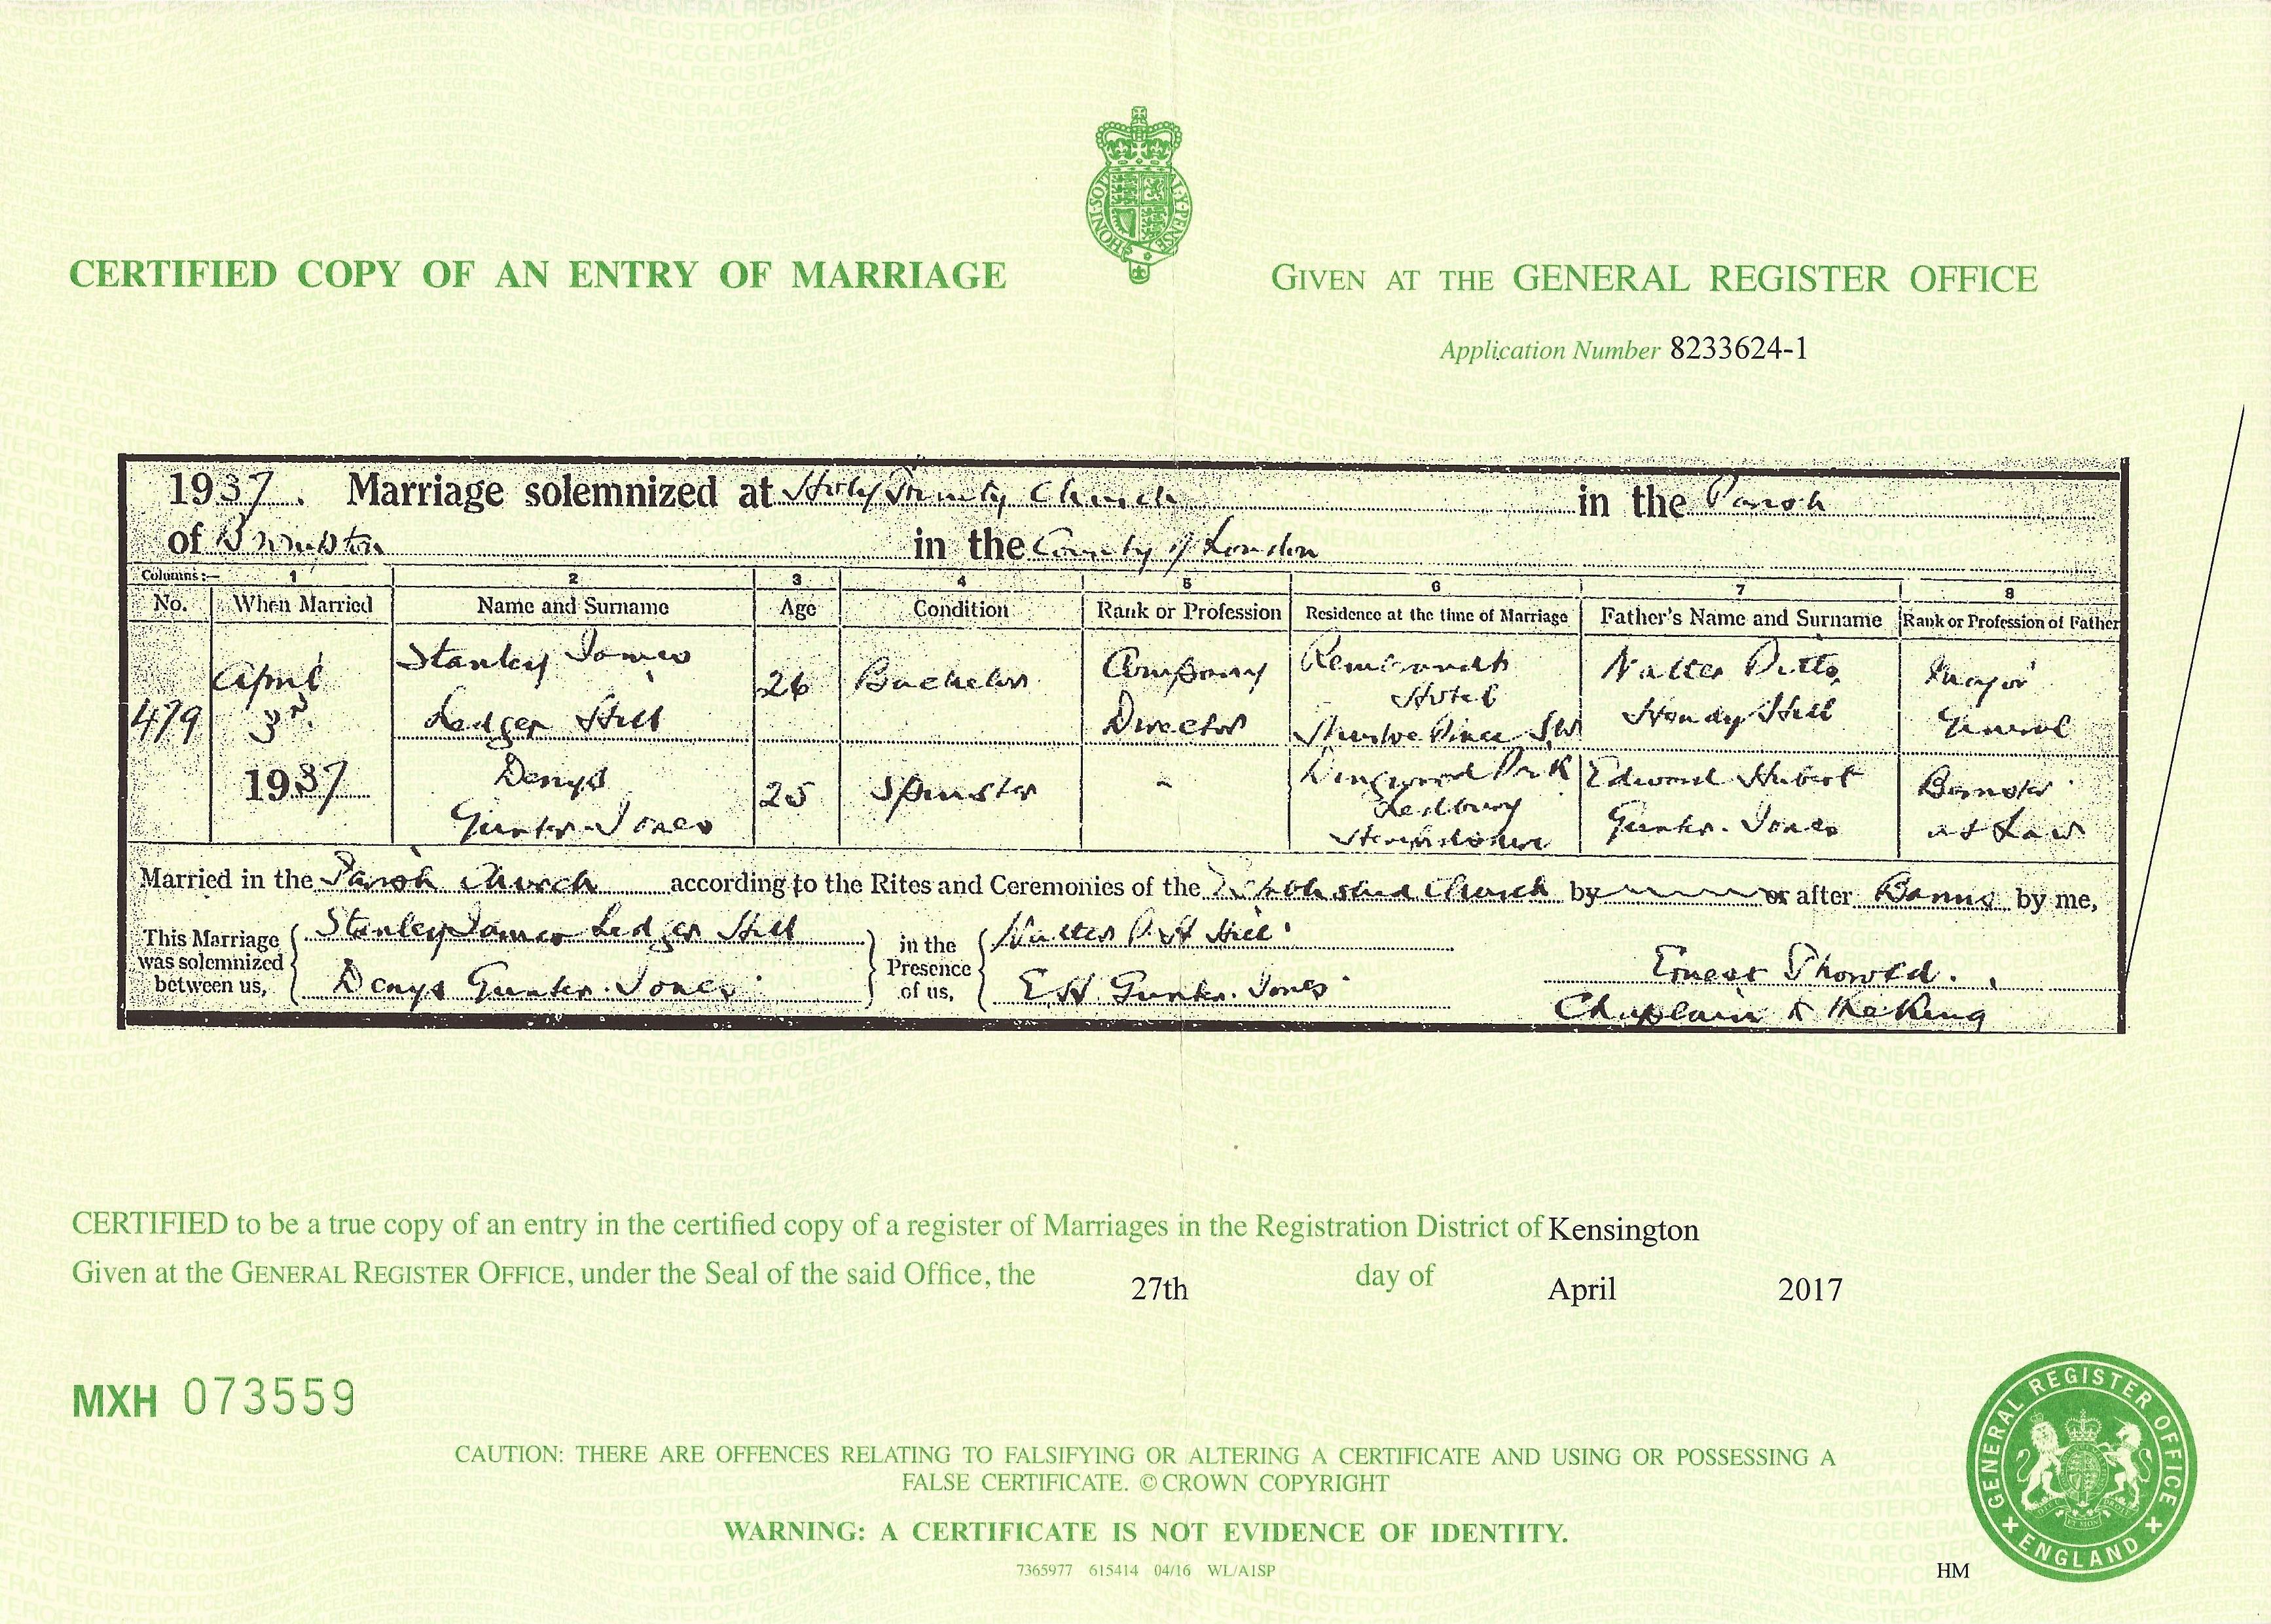 HONI·SOIT
Y·PENSE
CERTIFIED COPY OF AN ENTRY OF MARRIAGE
GIVEN AT THE GENERAL REGISTER OFFICE
Application Number 8233624-1
1937. Marriage solemnized at Holy Trinity Church in the Parish
of Brompton in the County of London
Columns:— 1 2 3 4 5 6 7 8
No. When Married Name and Surname Age Condition Rank or Profession Residence at the time of Marriage Father's Name and Surname Rank or Profession of Father
479 April 3rd Stanley James Ledger Hill 26 Bachelor Company Director Rembrandt Hotel Thurloe Place SW Walter Pitts Hendy Hill Major General
1937 Denys Gunter-Jones 25 Spinster - Park Ledbury Edward Hubert Gunter-Jones Barrister at Law
Married in the Parish Church according to the Rites and Ceremonies of the Established Church by or after Banns by me,
This Marriage was solemnized between us, Stanley James Ledger Hill Denys Gunter-Jones
in the Presence of us, Walter P. H. Hill E H Gunter-Jones
Ernest
Chaplain to the King
CERTIFIED to be a true copy of an entry in the certified copy of a register of Marriages in the Registration District of Kensington
Given at the GENERAL REGISTER OFFICE, under the Seal of the said Office, the 27th day of April 2017
MXH 073559
CAUTION: THERE ARE OFFENCES RELATING TO FALSIFYING OR ALTERING A CERTIFICATE AND USING OR POSSESSING A
FALSE CERTIFICATE. © CROWN COPYRIGHT
WARNING: A CERTIFICATE IS NOT EVIDENCE OF IDENTITY.
7365977 615414 04/16 WL/A1SP
HM
GENERAL REGISTER OFFICE
ENGLAND